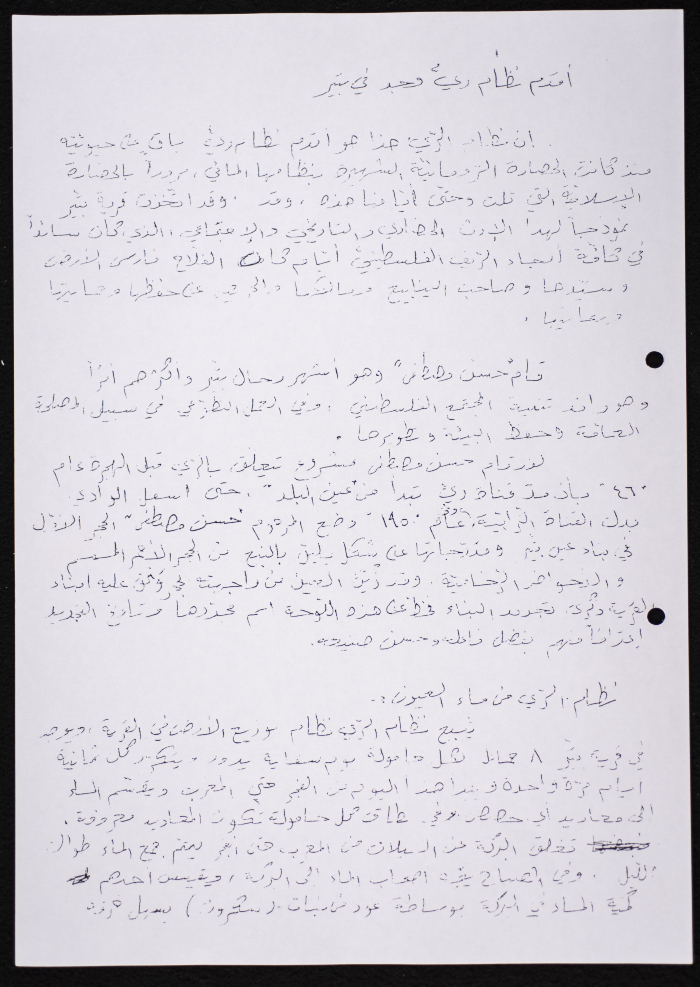 أقدم نظام ريّ وجد في بتير
. ان نظام الرّي هذا هو أقدم نظام ريّ باقٍ على حيويته
منذ كانت الحضارة الرومانيّة الشهيرة بنظامها المائي، مروراً بالحضارة
الإسلاميّة التي تلت وحتى أيامنا هذه، وقد. وقد اتخذت قرية بتير
نموذجياً لهذا الإرث الحضاري والتاريخي والاجتماعي، الذي كان سائداً
في كافّة أنحاء الريف الفلسطينيّ أيام كان الفلاح فارس الأرض
وسيّدها وصاحب الينابيع على حفظها وصيانتها
ورعايتها.
قام "حسن مصطفى" وهو أشهر رجال بتير وأكثرهم أثراً
وهو رائد تنمية المجتمع الفلسطيني، وفي العمل التطوّعي في سبيل المصلحة
العامّة وحفظ البيئة وتطويرها.
لقد قام حسن مصطفى مشروع تتعلق بالري قبل الهجرة عام
"٤٦" بأن مدّ قناة ريّ تبدأ من "عين البلد"، حتى أسفل الوادي
بدل القناة الترابيّة. عام ١٩٥٠ وضع المرحوم "حسن مصطفى" الحجر الأوّل
في بناء عين بتير ومدّرجاتها على شكل رايق بالنبع من الحجر الأحمر المسمسم
والأحواض الرخاميّة. وقد زيّن العين من واجهته لوحة نقش عليه أبناء
القرية ذكرى تجديد البناء فخطّ على هذه اللوحة اسم مجدّدها وتاريخ التجديد
إعترافاً منهم بفضل فاعله وحسن صنيعه.
نظام الرّي من ماء العيون:.
يتبع نظام الرّي نظام توزيع الأرض في القرية، ويوجد
في قرية بتير ٨ حمائل لكل حامولة يوم سقاية يدور، يتكرّر كل ثمانية
أيام مرّة واحدة ويبدأ هذا اليوم من الفجر حتى المغرب ويقسّم الماء
الى معاديد أي حصص، وفي نطاق كل حامولة تكون المعاديد معروفة،
تغلق البركة عن السيلان من المغرب حتى الفجر ليتم جمع الماء طوال
الليل. وفي الصباح يتجه أصحاب الماء الى البركة، ويقيس أحدهم
كميّة الماء في البركة بوساطة عود من نبات ( ) يسيل